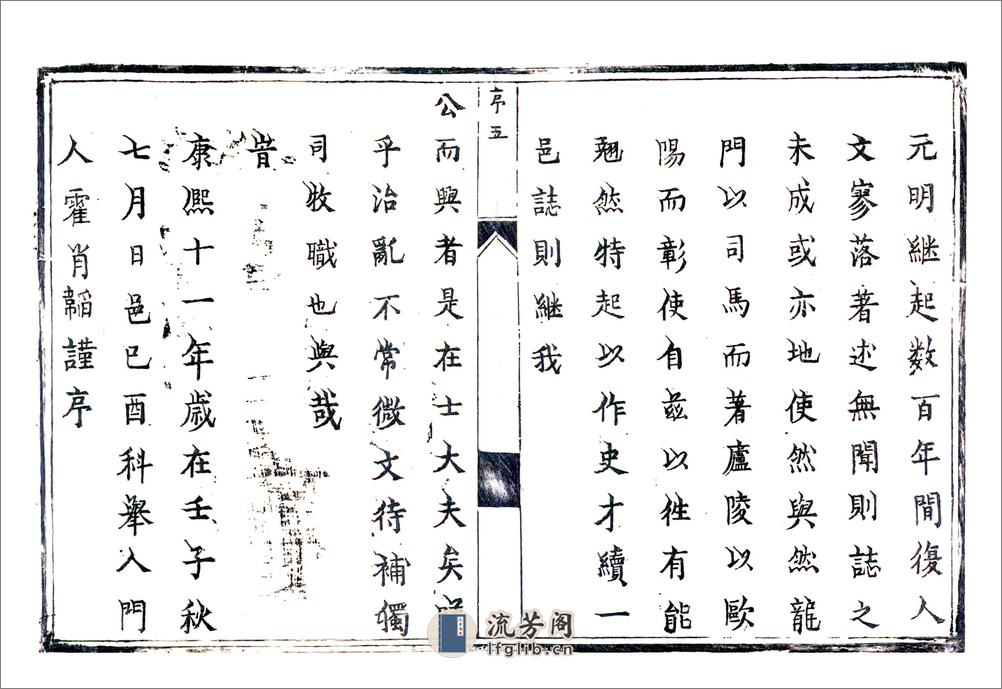 元明継起数百年間復人
文寥落著述無聞則誌之
未成或亦地使然與然龍
門以司馬而著廬陵以歐
陽而彰使自茲以徃有能
翘然特起以作史才續一
邑誌則継我
序五
公而興者是在士大夫矣
乎治亂不常微文待補獨
司牧職也與哉
昔
康熈十一年歳在壬子秋
七月日邑已酉科舉人門
人霍肖韜謹序
流芳阁
lfglib.cn